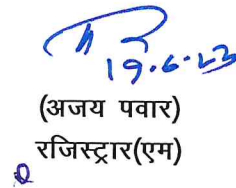 19.6.23
(अजय पवार)
रजिस्ट्रार(एम)